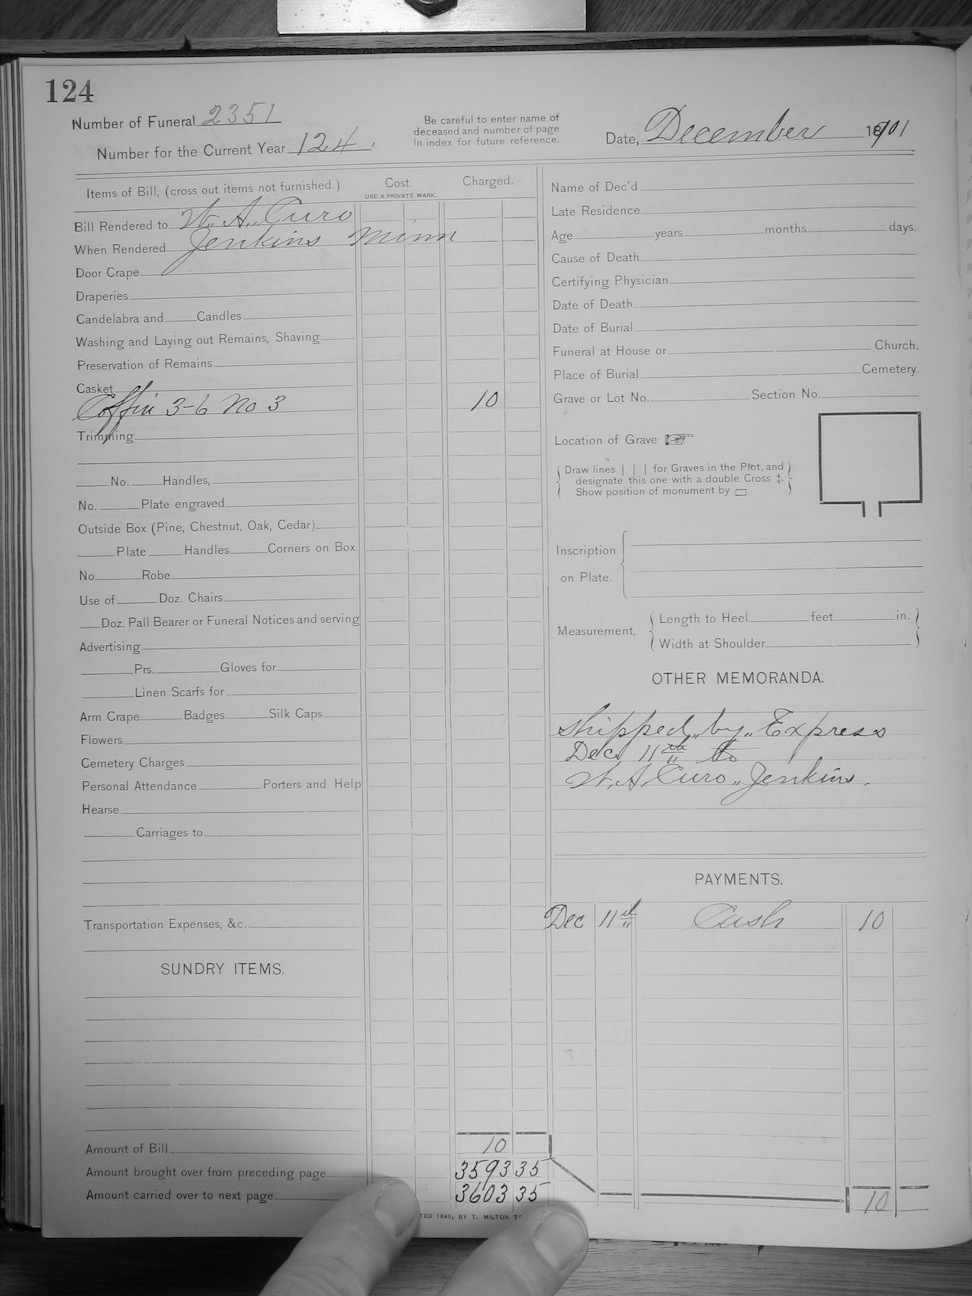 124
Number of Funeral 2351
Number for the Current Year 124.
Be careful to enter name of
deceased and number of page
in index for future reference.
Date, December 1901
Items of Bill, (cross out items not furnished.)
Cost.
USE A PRIVATE MARK.
Charged.
Bill Rendered to W. A. Curo
When Rendered Jenkins Minn
Door Crape
Draperies
Candelabra and Candles
Washing and Laying out Remains, Shaving
Preservation of Remains
Casket
Coffin 3-6 No 3 10
Trimming
No. Handles,
No. Plate engraved
Outside Box (Pine, Chestnut, Oak, Cedar)
Plate Handles Corners on Box.
No. Robe
Use of Doz. Chairs
Doz. Pall Bearer or Funeral Notices and serving
Advertising
Prs. Gloves for
Linen Scarfs for
Arm Crape Badges Silk Caps
Flowers
Cemetery Charges
Personal Attendance Porters and Help
Hearse
Carriages to
Transportation Expenses, &c.
SUNDRY ITEMS.
Amount of Bill 10
Amount brought over from preceding page 3593 35
Amount carried over to next page 3603 35
Name of Dec'd
Late Residence
Age years months days.
Cause of Death
Certifying Physician
Date of Death
Date of Burial
Funeral at House or Church.
Place of Burial Cemetery.
Grave or Lot No. Section No.
Location of Grave ☞
Draw lines | | | for Graves in the Plot, and
designate this one with a double Cross ‡.
Show position of monument by ▭
Inscription
on Plate.
Measurement,
Length to Heel feet in.
Width at Shoulder
OTHER MEMORANDA.
Shipped by Express
Dec 11th to
W. A. Curo, Jenkins.
PAYMENTS.
Dec 11th Cash 10
10
TED 1890, BY T. MILTON